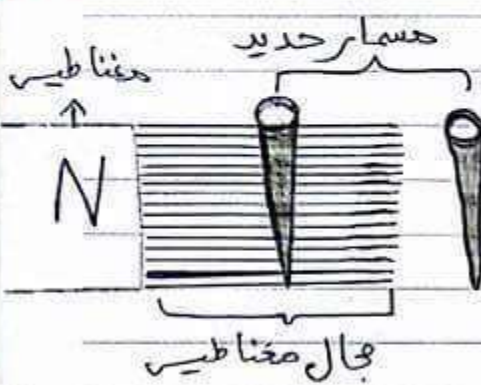 مسمار حديد
مغناطيس
N
مجال مغناطيس